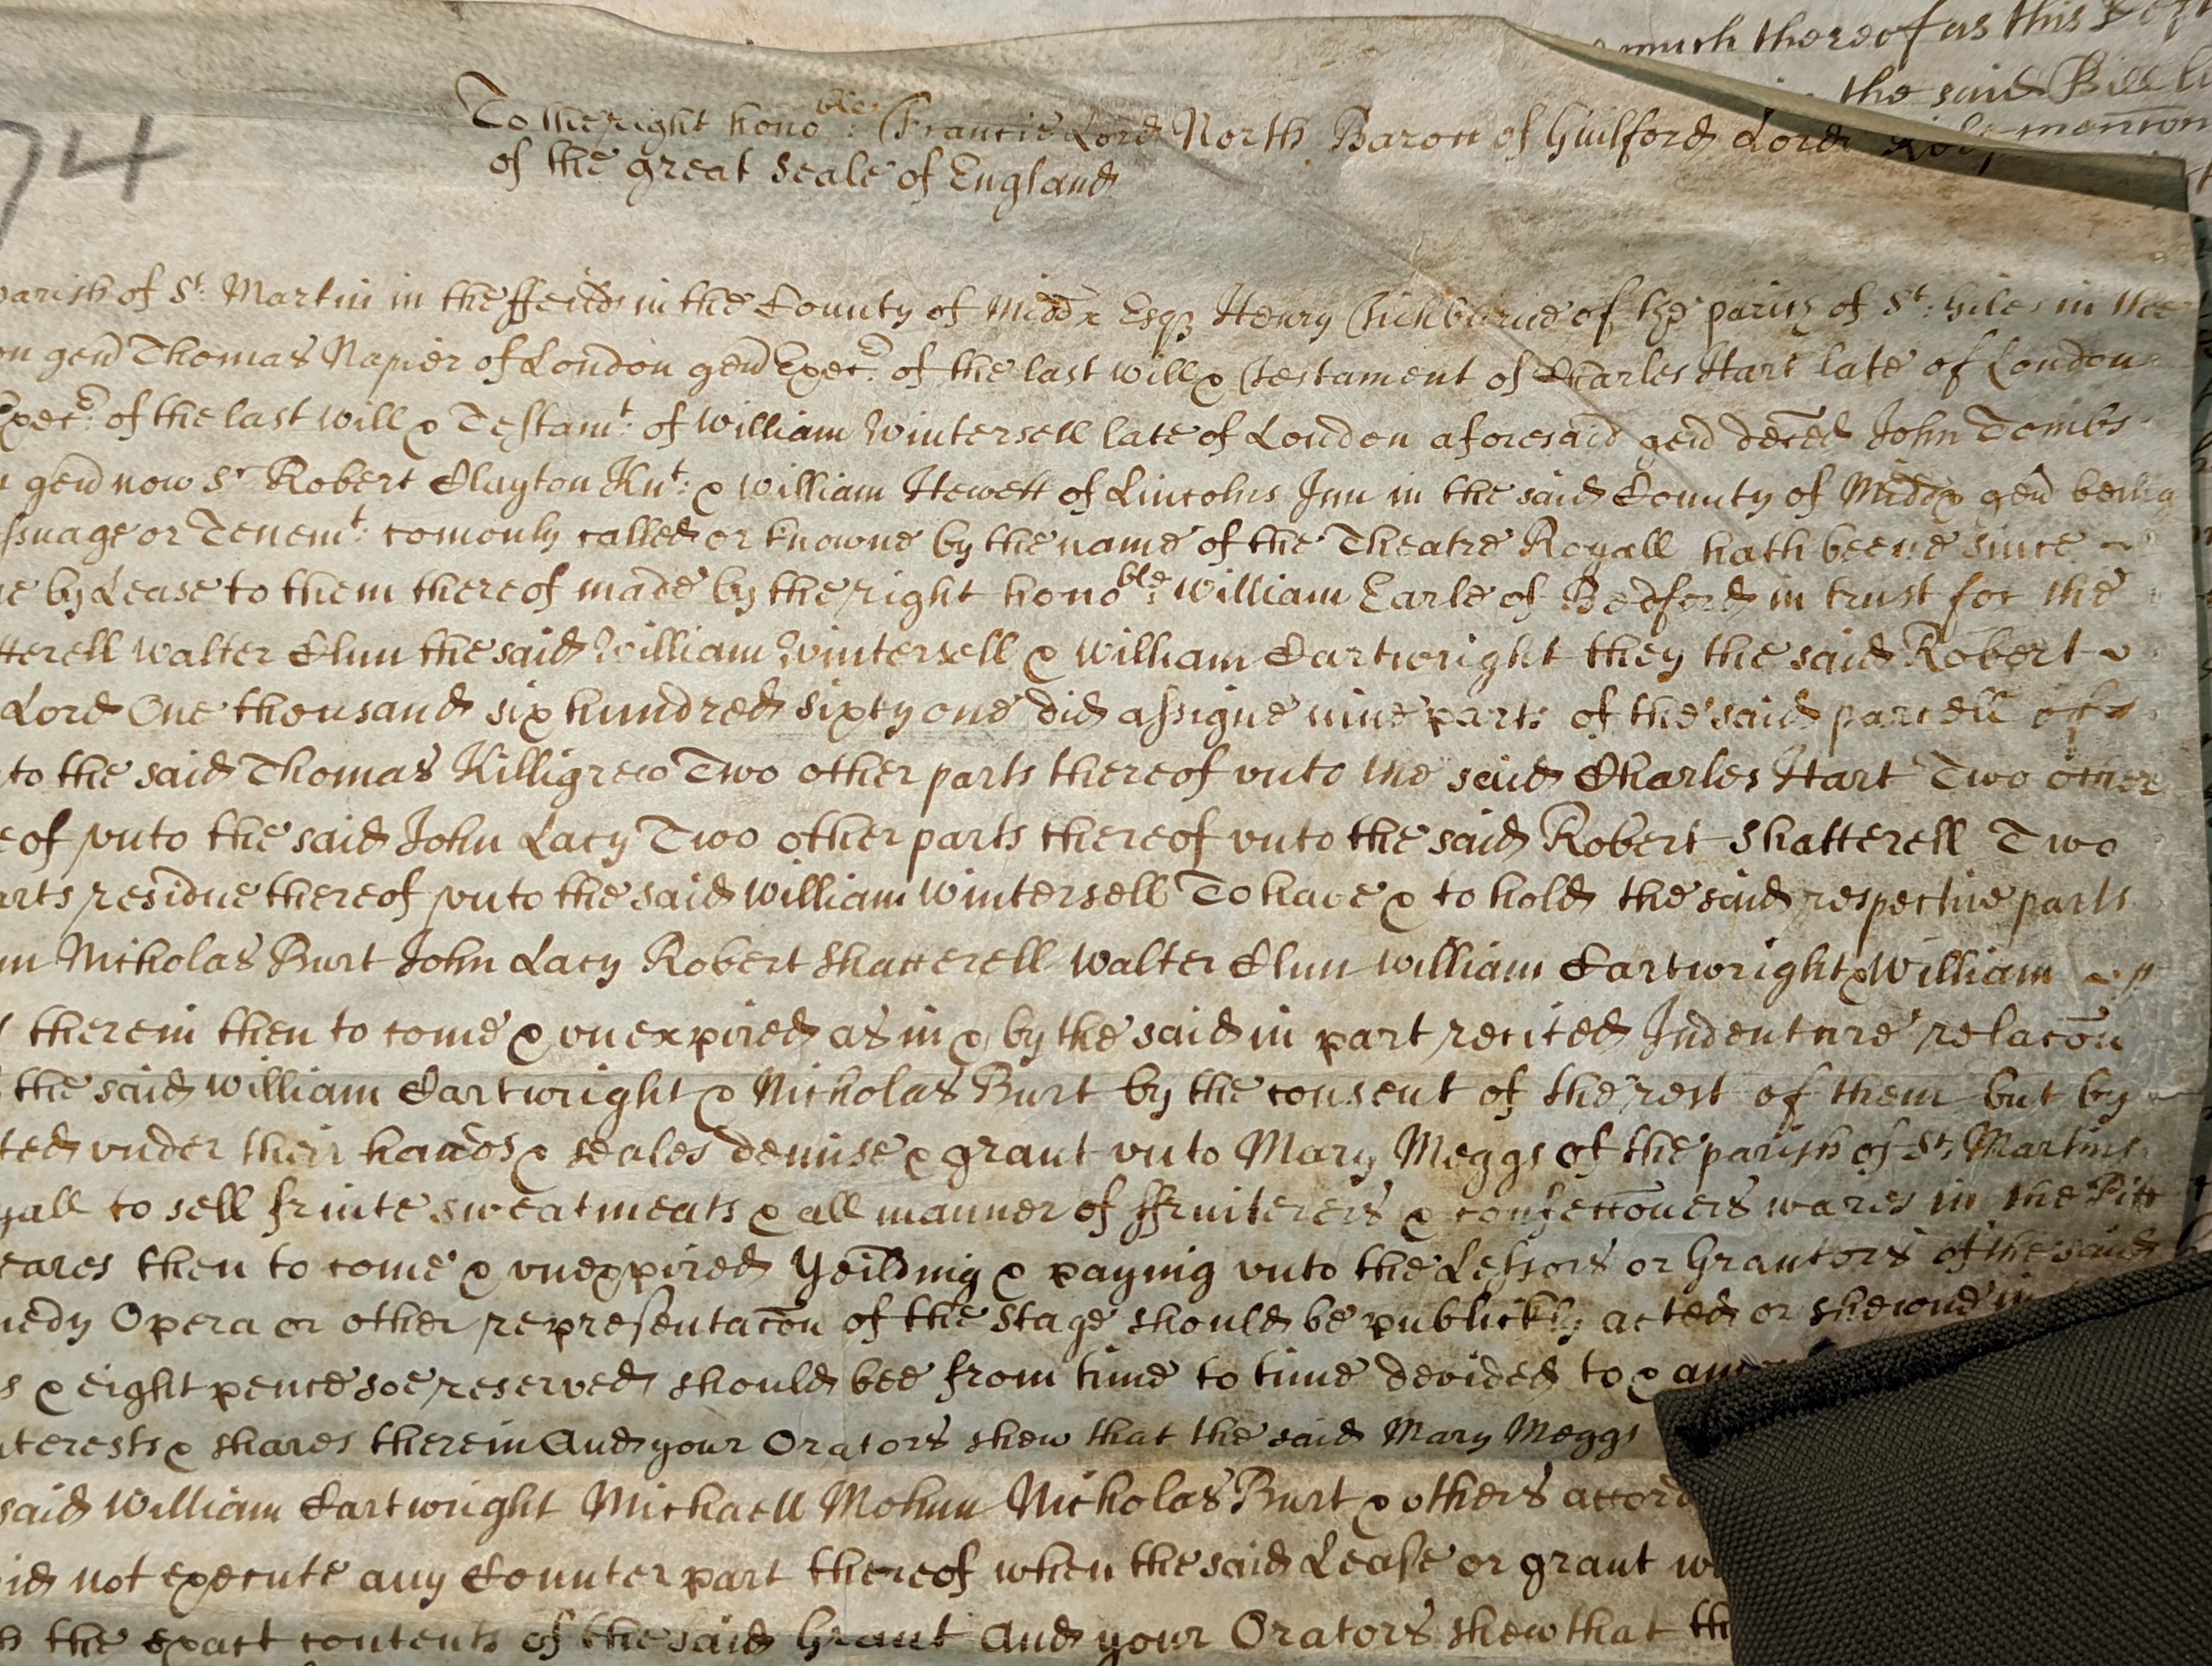 much thereof as this
the said Bill
74
To the right hono:ble Francis Lord North Baron of Guilford Lord
mencon
of the great Seale of England
parish of St. Martin in the ffeilds in the County of Middx Esqr Henry Tichburne of the parish of St: Giles in the
gen Thomas Napier of London gen Execr. of the last will & Testament of Charles Hart late of London
Execr. of the last will & Testamt: of William Wintersell late of London aforesaid gen deced John Tombs
gen now Sr Robert Clayton Knt: & William Hewett of Lincolns Inn in the said County of Middx gen being
ssuage or Tenemt: comonly called or knowne by the name of the Theatre Royall hath beene since
by Lease to them thereof made by the right hono:ble William Earle of Bedford in trust for the
tterell Walter Clun the said William Wintersell & William Cartwright they the said Robert
Lord One thousand six hundred sixty one did assigne nine parts of the said parcell of
to the said Thomas Killigrew Two other parts thereof vnto the said Charles Hart Two other
eof vnto the said John Lacy Two other parts thereof vnto the said Robert Shatterell Two
arts residue thereof vnto the said William Wintersell To have & to hold the said respective parts
m Nicholas Burt John Lacy Robert Shatterell Walter Clun William Cartwright & William
therein then to come & vnexpired as in & by the said in part recited Indenture relacon
the said William Cartwright & Nicholas Burt by the consent of the rest of them but by
ted vnder their hands & seales demise & grant vnto Mary Meggs of the parish of St Martins
yall to sell fruite sweatmeats & all manner of ffruiterers & confecconers wares in the Pitt
eares then to come & vnexpired Yeilding & paying vnto the Lessors or Grantors of the said
edy Opera or other representacon of the Stage should be publickly acted or shewne in
s & eight pence soe reserved should bee from time to time devided to &
terests & shares therein And your Orators shew that the said Mary Meggs
said William Cartwright Michaell Mohun Nicholas Burt & others accord
id not execute any Counter part thereof when the said Lease or grant w
h the exact contents of the said Grant And your Orators shew that th